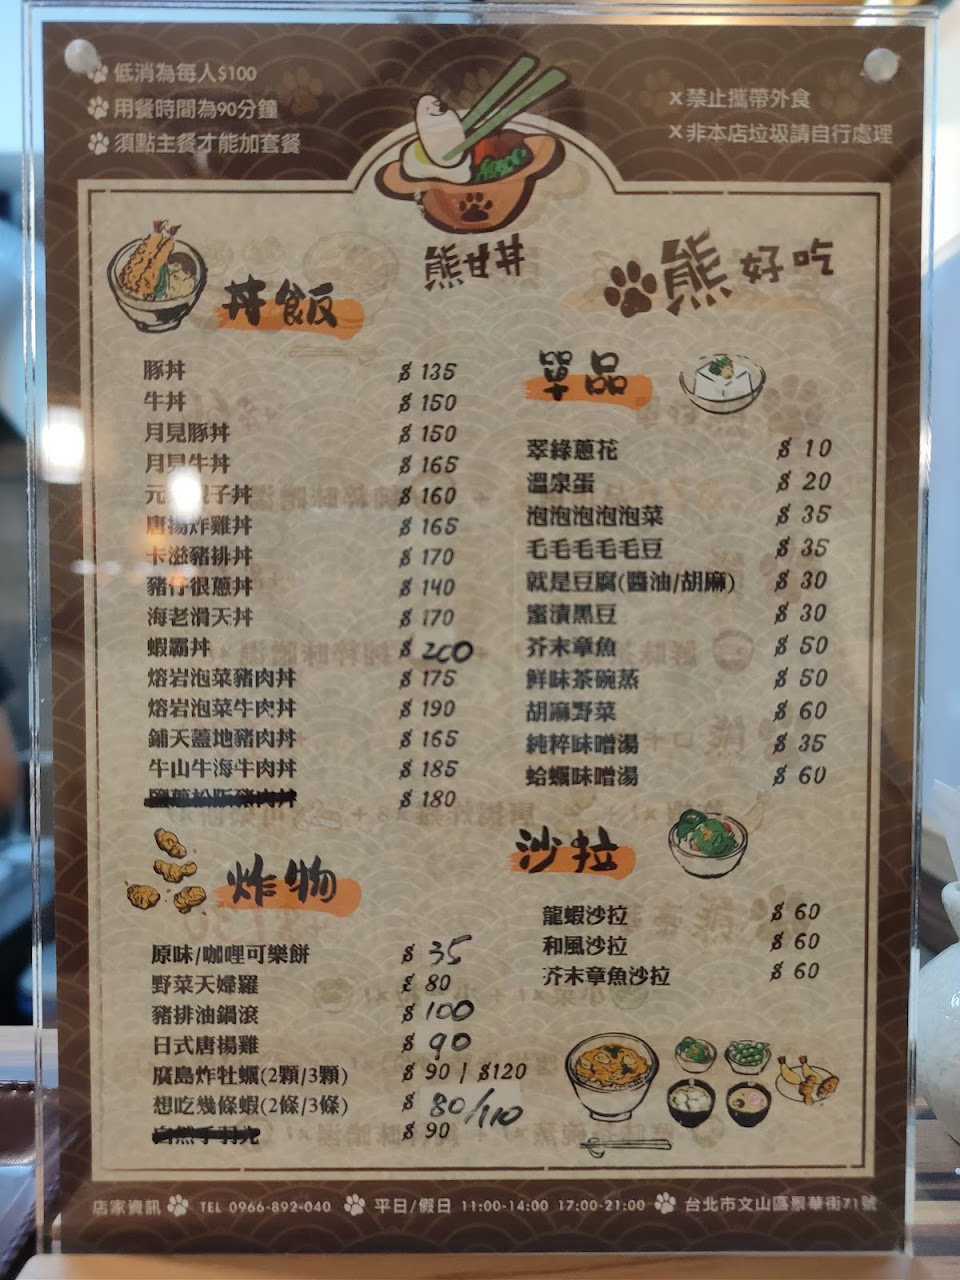 低消為每人$100
用餐時間為90分鐘
須點主餐才能加套餐
x禁止攜帶外食
x非本店垃圾請自行處理
熊甘丼
熊好吃
丼飯
豚丼 $135
牛丼 $150
月見豚丼 $150
月見牛丼 $165
元 親子丼 $160
唐揚炸雞丼 $165
卡滋豬排丼 $170
豬仔很蔥丼 $140
海老滑天丼 $170
蝦霸丼 $200
熔岩泡菜豬肉丼 $175
熔岩泡菜牛肉丼 $190
鋪天蓋地豬肉丼 $165
牛山牛海牛肉丼 $185
鹽蔥松阪豬肉丼 $180
炸物
原味/咖哩可樂餅 $35
野菜天婦羅 $80
豬排油鍋滾 $100
日式唐揚雞 $90
廣島炸牡蠣(2顆/3顆) $90 / $120
想吃幾條蝦(2條/3條) $80/110
自然手羽先 $90
單品
翠綠蔥花 $10
溫泉蛋 $20
泡泡泡泡泡菜 $35
毛毛毛毛毛豆 $35
就是豆腐(醬油/胡麻) $30
蜜漬黑豆 $30
芥末章魚 $50
鮮味茶碗蒸 $50
胡麻野菜 $60
純粹味噌湯 $35
蛤蠣味噌湯 $60
沙拉
龍蝦沙拉 $60
和風沙拉 $60
芥末章魚沙拉 $60
店家資訊 TEL 0966-892-040 平日/假日 11:00-14:00 17:00-21:00 台北市文山區景華街71號